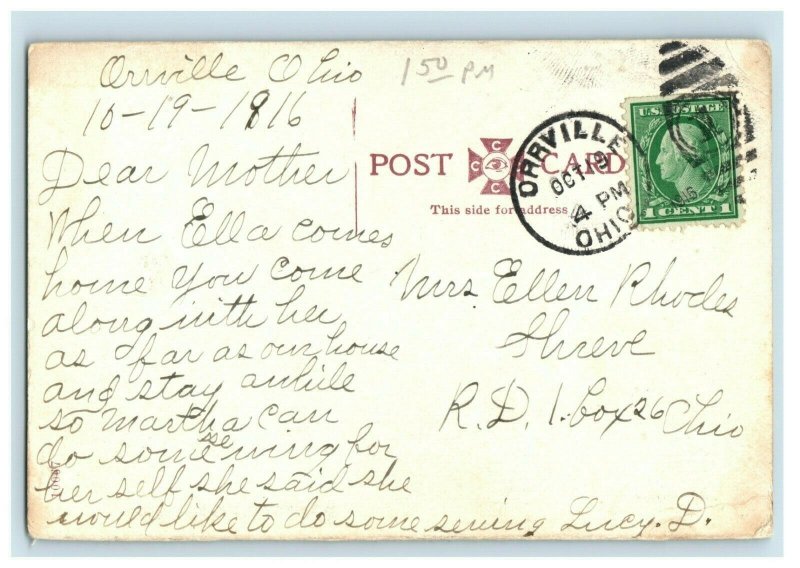 Orrville Ohio
10-19-1916
1 50 PM
Dear Mother
When Ella comes
home you come
along with her
as far as our house
and stay awhile
so martha can
do some sewing for
her self she said she
would like to do some sewing Lucy. D.
POST CARD
C C C C
This side for address
ORRVILLE
OCT 19
4 PM
OHIO
U.S. POSTAGE
1 CENT 1
Mrs Ellen Rhodes
Shreve
R.D. 1. Box 26 Ohio